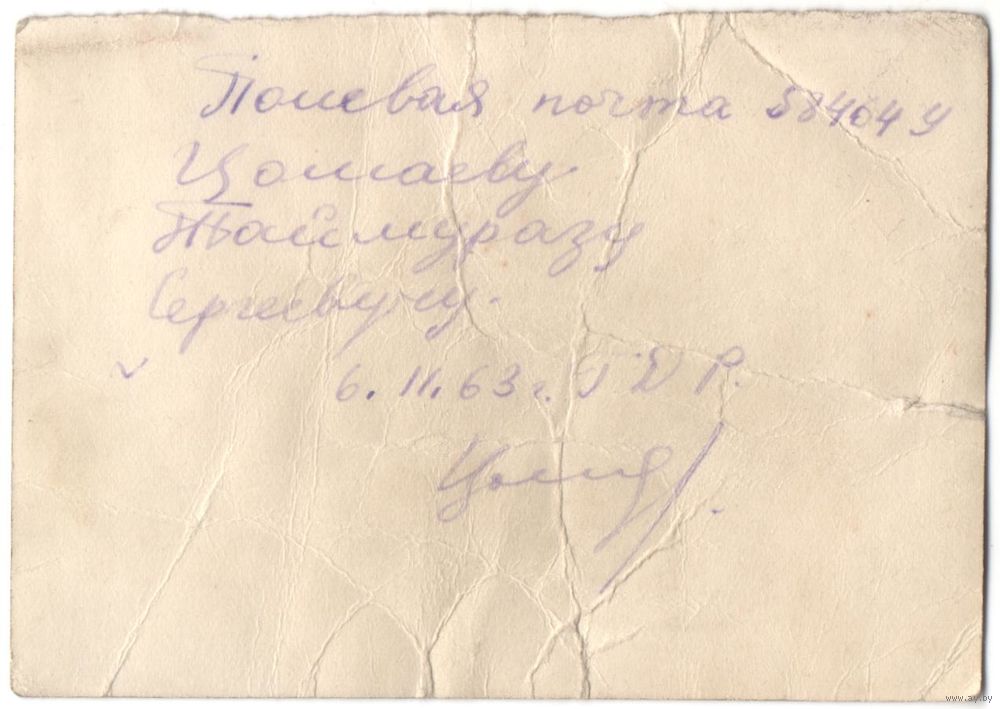 Полевая почта 58404 У
Цомаеву
Таймуразу
Сергеевичу.
6.11.63 г. ГДР.
www.ay.by